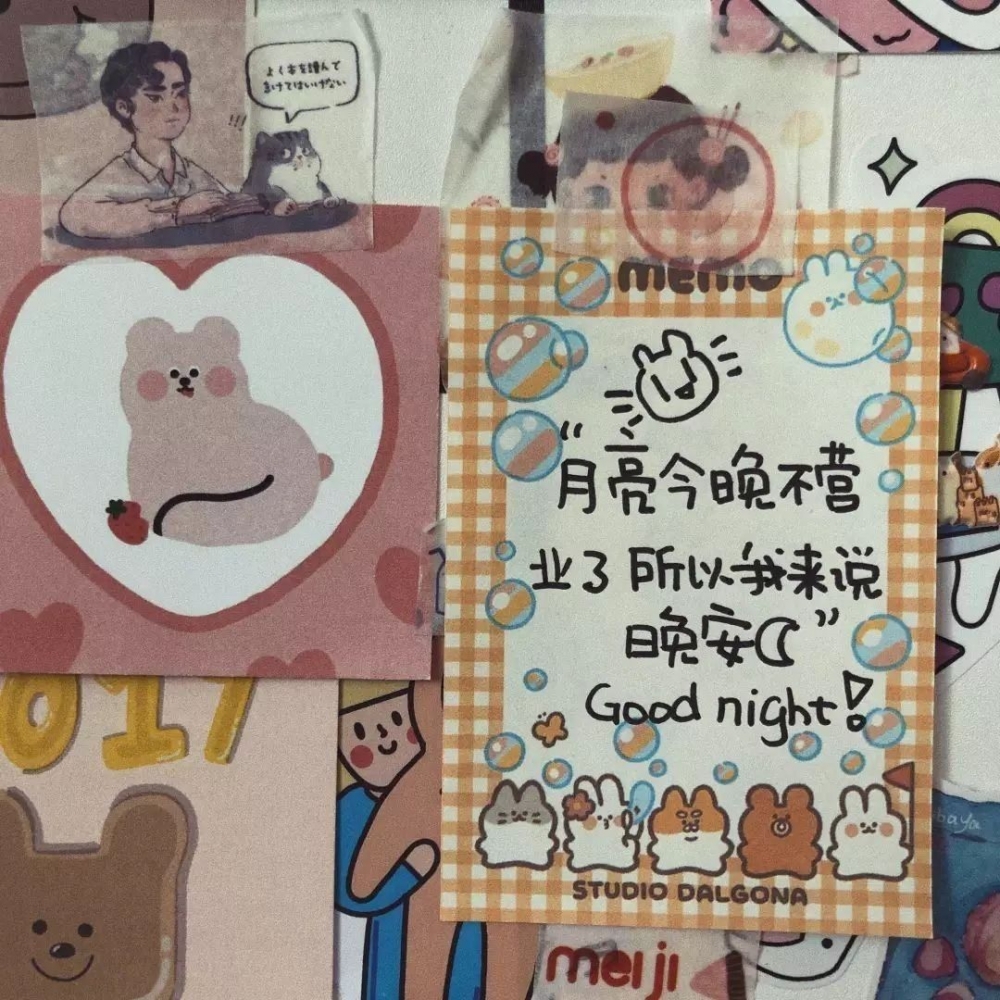 よく本を読んで
怠けてはいけない
!!!
memo
“月亮今晚不营
业了 所以我来说
晚安”
Good night!
STUDIO DALGONA
017
baya
meiji